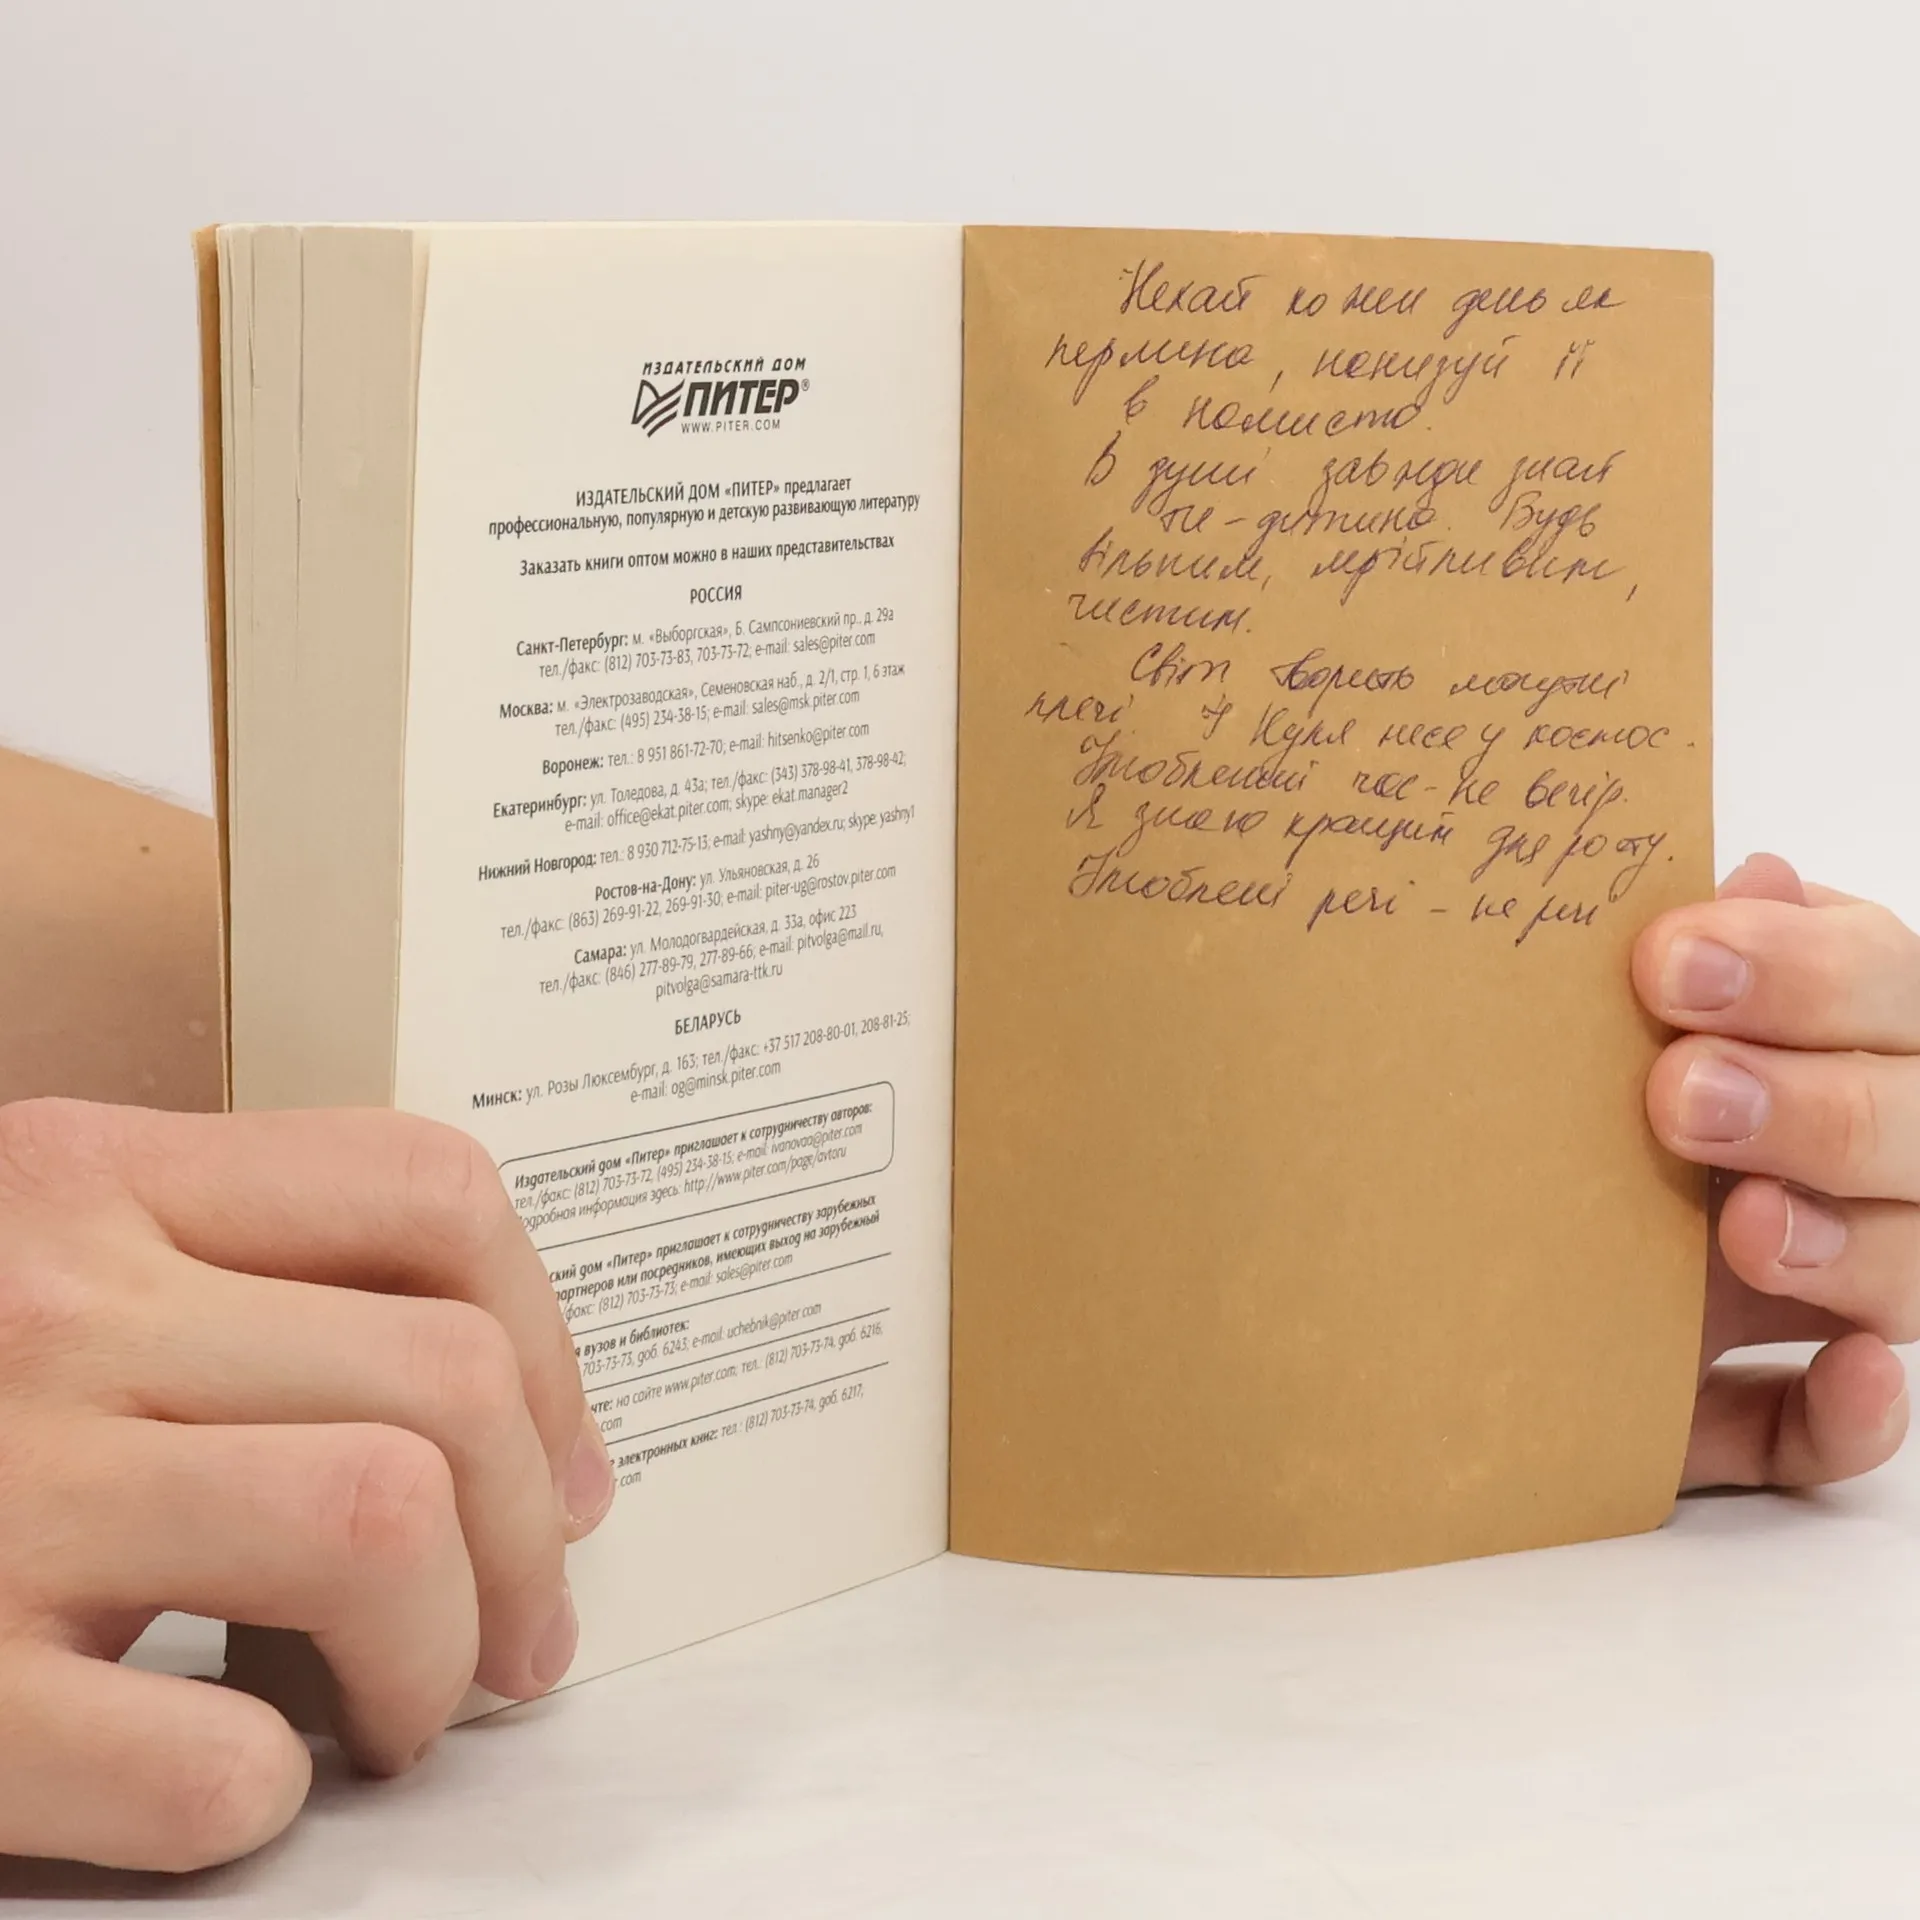 ИЗДАТЕЛЬСКИЙ ДОМ
ПИТЕР®
WWW.PITER.COM
ИЗДАТЕЛЬСКИЙ ДОМ «ПИТЕР» предлагает
профессиональную, популярную и детскую развивающую литературу
Заказать книги оптом можно в наших представительствах
РОССИЯ
Санкт-Петербург: м. «Выборгская», Б. Сампсониевский пр., д. 29а
тел./факс: (812) 703-73-83, 703-73-72; e-mail: sales@piter.com
Москва: м. «Электрозаводская», Семеновская наб., д. 2/1, стр. 1, 6 этаж
тел./факс: (495) 234-38-15; e-mail: sales@msk.piter.com
Воронеж: тел.: 8 951 861-72-70; e-mail: hitsenko@piter.com
Екатеринбург: ул. Толедова, д. 43а; тел./факс: (343) 378-98-41, 378-98-42;
e-mail: office@ekat.piter.com; skype: ekat.manager2
Нижний Новгород: тел.: 8 930 712-75-13; e-mail: yashny@yandex.ru; skype: yashny1
Ростов-на-Дону: ул. Ульяновская, д. 26
тел./факс: (863) 269-91-22, 269-91-30; e-mail: piter-ug@rostov.piter.com
Самара: ул. Молодогвардейская, д. 33а, офис 223
тел./факс: (846) 277-89-79, 277-89-66; e-mail: pitvolga@mail.ru,
pitvolga@samara-ttk.ru
БЕЛАРУСЬ
Минск: ул. Розы Люксембург, д. 163; тел./факс: +37 517 208-80-01, 208-81-25;
e-mail: og@minsk.piter.com
Издательский дом «Питер» приглашает к сотрудничеству авторов:
тел./факс: (812) 703-73-72, (495) 234-38-15; e-mail: ivanovaa@piter.com
Подробная информация здесь: http://www.piter.com/page/avtoru
ский дом «Питер» приглашает к сотрудничеству зарубежных
партнеров или посредников, имеющих выход на зарубежный
/факс: (812) 703-73-73; e-mail: sales@piter.com
я вузов и библиотек:
703-73-73, доб. 6243; e-mail: uchebnik@piter.com
чте: на сайте www.piter.com; тел.: (812) 703-73-74, доб. 6216;
.com
е электронных книг: тел.: (812) 703-73-74, доб. 6217;
.com
Нехай кожен день як
перлина, нанизуй її
в намисто.
В душі завжди знай
ти - дитина. Будь
вільним, мрійливим,
чистим.
Світ творить могутні
плечі. У Куля несе у космос.
Улюблений час - не вечір.
Я знаю кращий для росту.
Улюблені речі - не речі